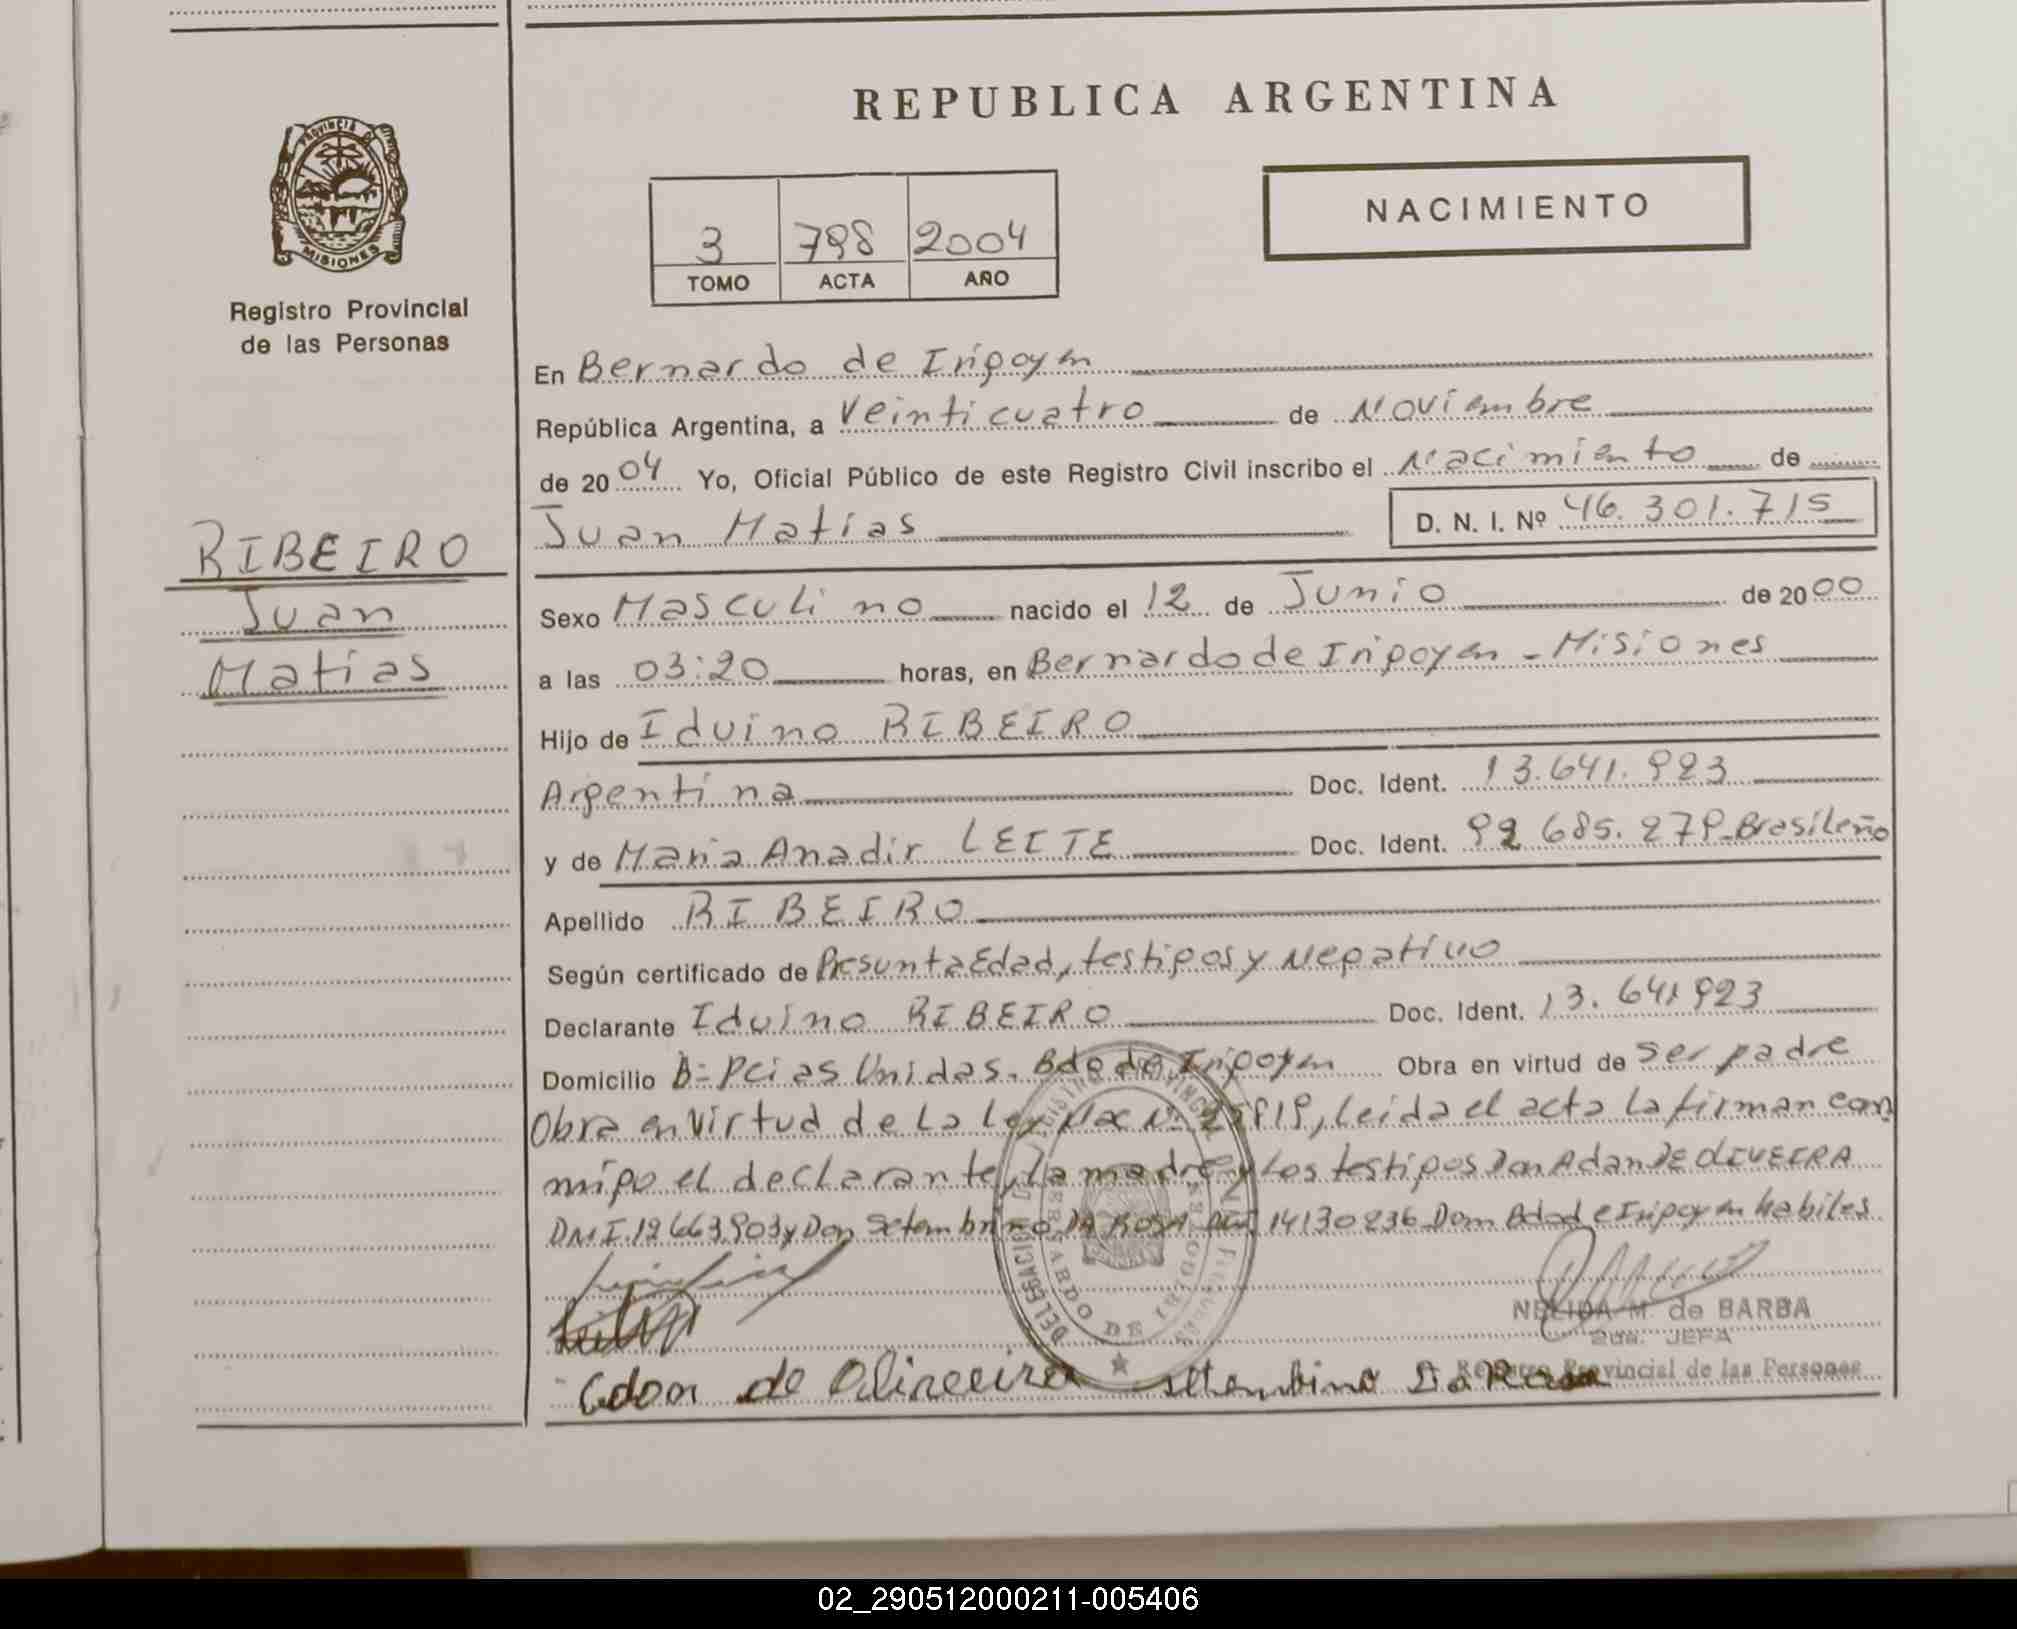 REPUBLICA ARGENTINA
PROVINCIA DE MISIONES
Registro Provincial
de las Personas
NACIMIENTO
3 798 2004
TOMO ACTA AÑO
En Bernardo de Irigoyen
República Argentina, a Veinticuatro de Noviembre
de 2004 Yo, Oficial Público de este Registro Civil inscribo el Nacimiento de
Juan Matias D. N. I. Nº 46.301.715
RIBEIRO
Juan
Matias
Sexo Masculino nacido el 12 de Junio de 2000
a las 03:20 horas, en Bernardo de Irigoyen - Misiones
Hijo de Iduino RIBEIRO
Argentina Doc. Ident. 13.641.923
y de Maria Anadir LEITE Doc. Ident. 92 685.279-Brasileño
Apellido RIBEIRO
Según certificado de Presunta Edad, testigos y Negativo
Declarante Iduino RIBEIRO Doc. Ident. 13.641923
Domicilio Bº Pcias Unidas. Bdo de Irigoyen Obra en virtud de ser padre
Obra en virtud de la Ley Nac Nº 25819, leida el acta la firman con
migo el declarante, la madre y los testigos Don Adan DE OLIVEIRA
DNI.12663.903 y Don Setembrino DA ROSA DNI 14130236 Dom Bdo de Irigoyen habiles
NELIDA M. de BARBA
JEFA
Registro Provincial de las Personas
Adon de Oliveira Setembino Da Rosa
02_290512000211-005406